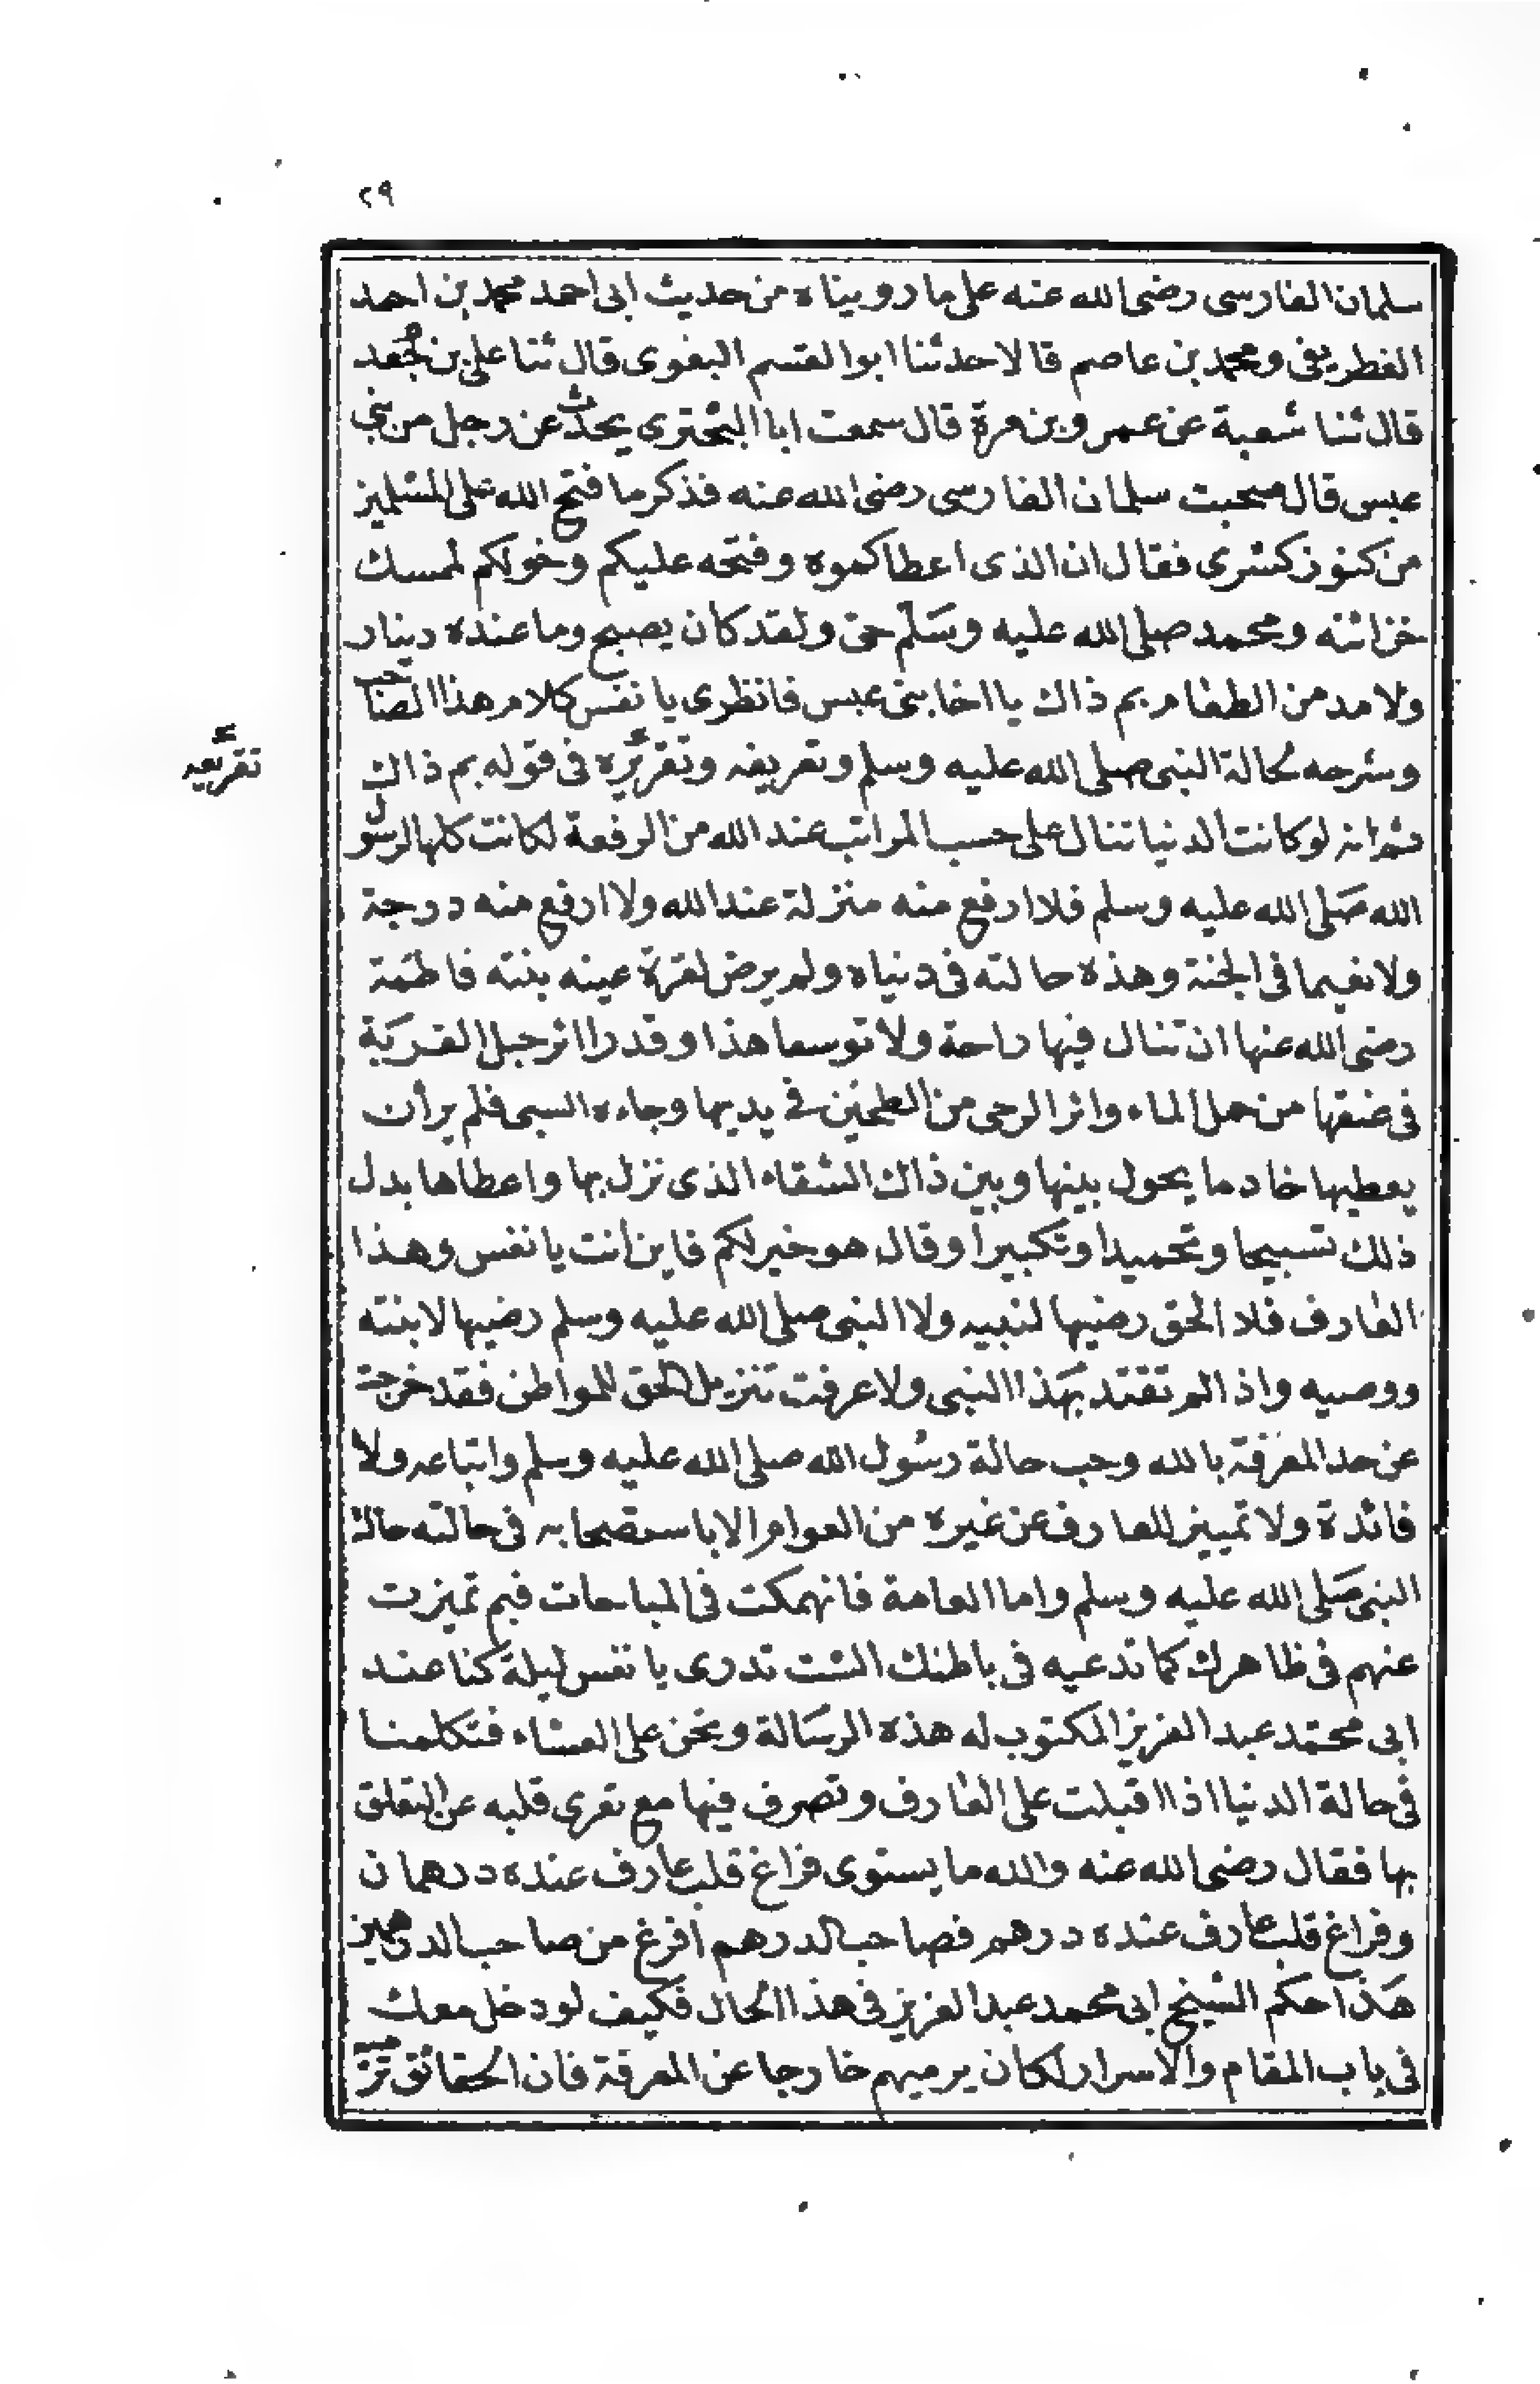 ٢٩
سلمان الفارسى رضى الله عنه على ما رويناه من حديث ابى احمد محمد بن احمد
الغطريفى ومحمد بن عاصم قالا حدثنا ابوا لقسم البغوى قال ثنا على بن جُعد
قال ثنا شعبة عن عمرو بن مرة قال سمعت ابا البخترى يحدث عن رجل من بنى
عبس قال صحبت سلمان الفارسى رضى الله عنه فذكر ما فتح الله على المسلمين
من كنوز كسرى فقال ان الذى اعطاكموه وفتحه عليكم وخولكم لممسك
خزائنه ومحمد صلى الله عليه وسَلّم حىّ ولقد كان يصبح وما عنده دينار
ولا مد من الطعام بم ذاك يا اخا بنى عبس فانظرى يا نفس كلام هذا الصّاحب
وشرحه لحالة النبى صلى الله عليه وسلم وتعريفه وتقريره فى قوله بم ذاك
تقريعه
ثم انه لو كانت الدنيا تنال على حسب المراتب عند الله من الرفعة لكانت كلها لرسول
الله صَلى الله عليه وسلم فلا ارفع منه منزلة عند الله ولا ارفع منه درجة
ولا نعيما فى الجنة وهذه حالته فى دنياه ولم يرض لقرة عينه بنته فاطمة
رضى الله عنها ان تنال فيها راحة ولا توسعا هذا وقد را اثر حبل القربَة
فى عنقها من حمل الماء واثر الرحى من الطحين فى يديها وجاءه السبى فلم ير أن
يعطيها خادما يحول بينها وبين ذاك الشقاء الذى نزل بها واعطاها بدل
ذلك تسبيحا وتحميدا وتكبيرا وقال هو خير لكم فاين أنت يا نفس وهذا
العارف فلا الحق رضيها لنبيه ولا النبى صلى الله عليه وسلم رضيها لابنته
ووصيه واذا لم تقتد بهَذا النبى ولا عرفت تنزيل الحق للمواطن فقد خرجت
عن حد المعرفة بالله وجب حالة رسُول الله صلى الله عليه وسلم واتباعه ولا
فائدة ولا تمييز للعارف عن غيره من العوام الا باستصحابه فى حالته حالة
النبى صَلى الله عليه وسلم واما العامة فانهمكت فى المباحات فبم تميزت
عنهم فى ظاهرك كما تدعيه فى باطنك الست تدرى يا نفس ليلة كنا عند
ابى محمّد عبد العزيز المكتوب له هذه الرسَالة ونحن على العشاء فتكلمنا
فى حالة الدنيا اذا اقبلت على العارف وتصرف فيها مع تعرى قلبه عن التعلق
بها فقال رضى الله عنه والله ما يستوى فراغ قلب عارف عنده درهمان
وفراغ قلب عارف عنده درهم فصاحب الدرهم أفرغ من صاحب الدرهمين
هَذا حكم الشيخ ابى محمد عبد العزيز فى هذا الحال فكيف لو دخل معك
فى باب المقام والاسرار لكان يرميهم خارجا عن المعرفة فان الحقائق